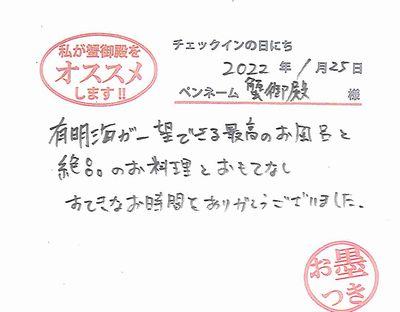 私が蟹御殿を
オススメ
します!!
チェックインの日にち
2022 年 1 月 25 日
ペンネーム 蟹御殿 様
有明海が一望できる最高のお風呂と
絶品のお料理とおもてなし
すてきなお時間をありがとうございました。
お墨
つき